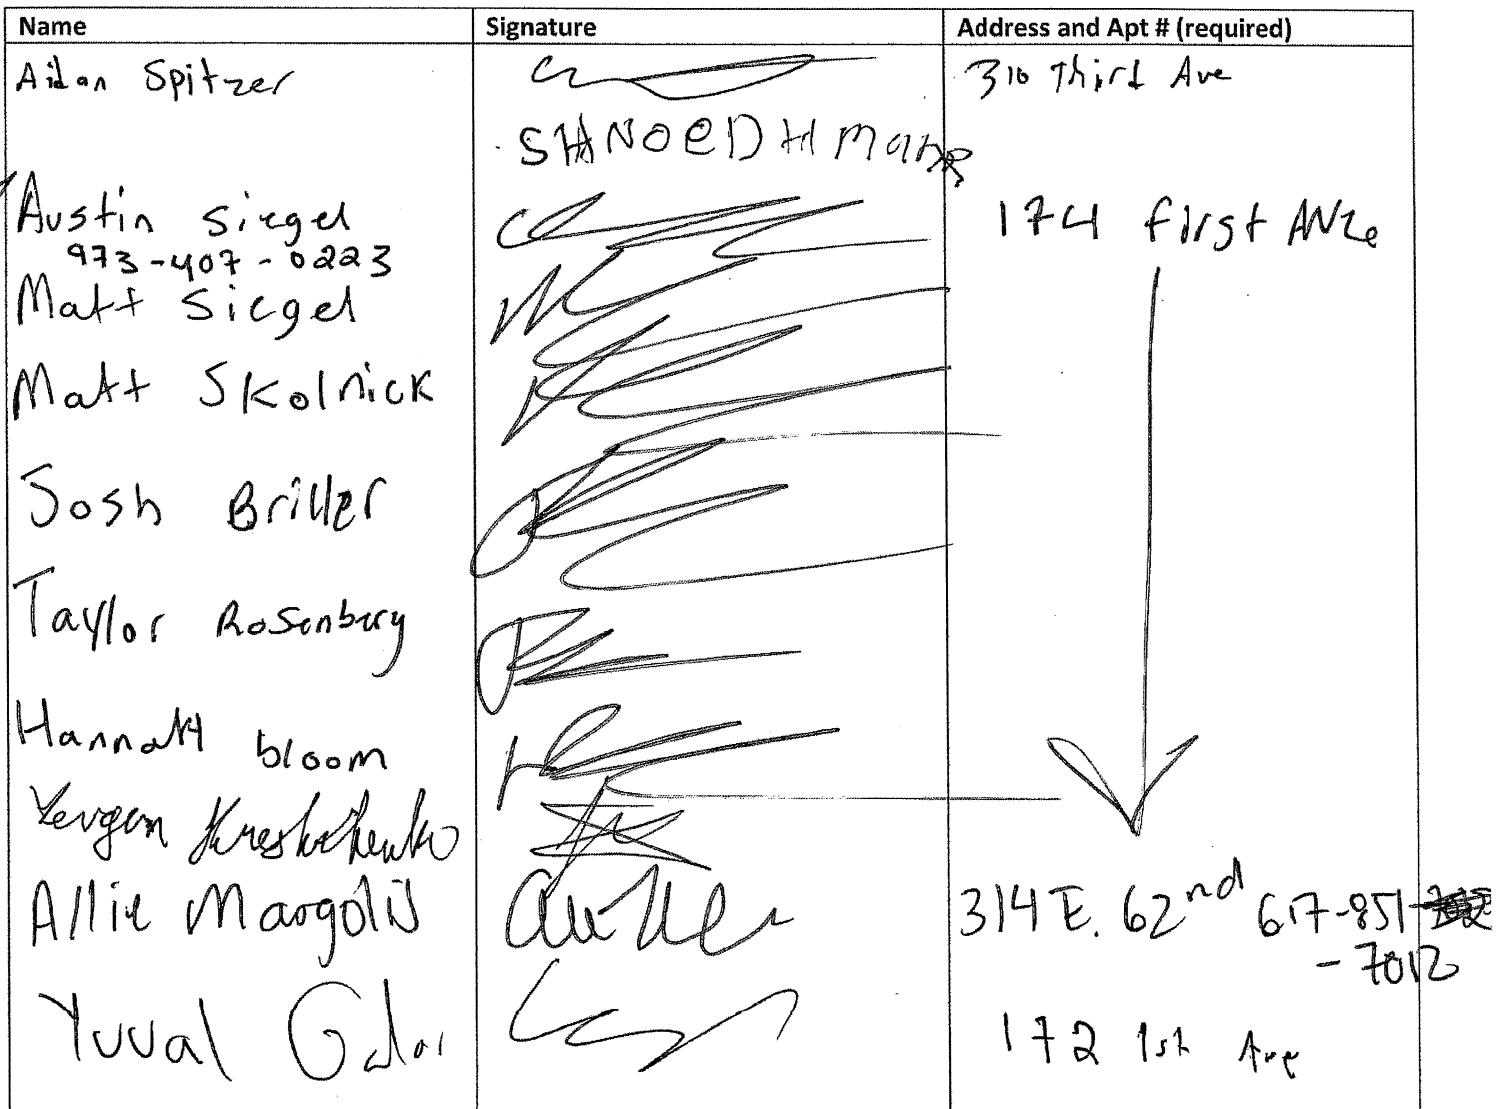 Name Signature Address and Apt # (required)
Aidan Spitzer 310 Third Ave
SHNOEDH
Austin Siegel 174 first Ave
973-407-0223
Matt Siegel
Matt Skolnick
Josh Briller
Taylor Rosenberg
HannaH bloom
Yevgen
Allie Margolis 314 E. 62nd 617-851
-7012
Yuval 172 1st Ave